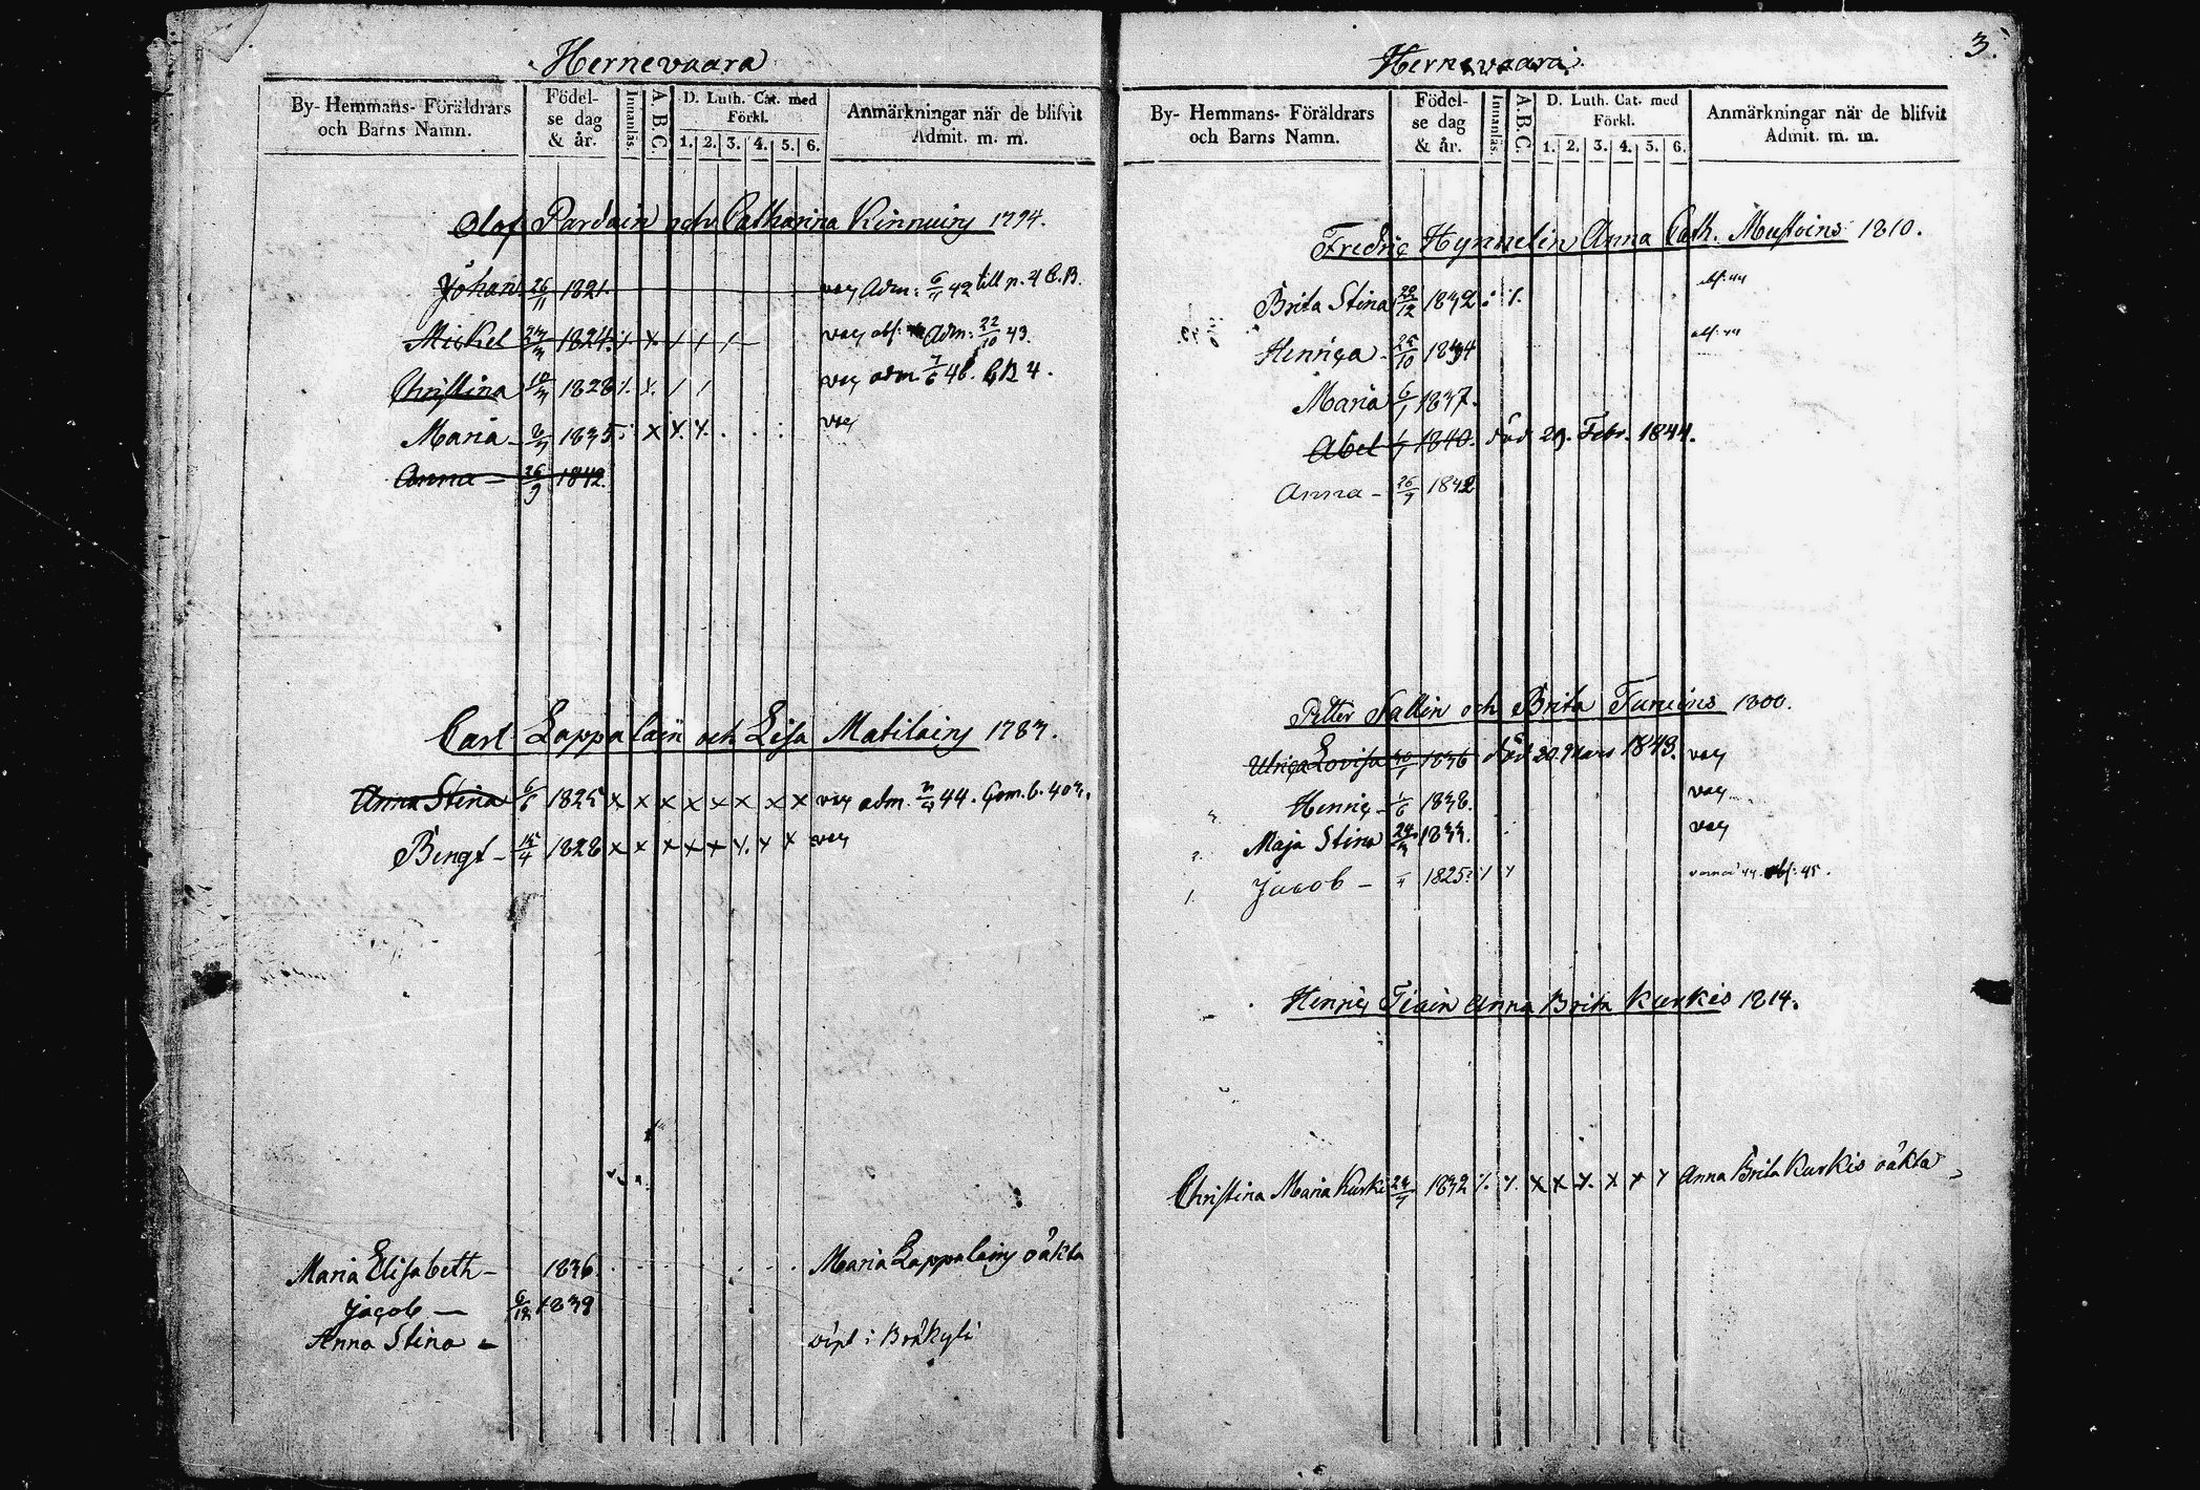 Hernevaara
By- Hemmans- Föräldrars och Barns Namn.
Födelse dag & år.
Innanläs.
A. B. C.
D. Luth. Cat. med Förkl.
1. 2. 3. 4. 5. 6.
Anmärkningar när de blifvit Admit. m. m.
Olof Pardain och Catharina Kinnuiny 1794.
Johan 26/11 1821. Adm: 6/11 42 till p. 4 C.B.
Mickel 1824. x / / / Adm: 22/10 43.
Christina 1828 /. x. / / adm 7/6 46. CB 4.
Maria 1835 x
Anna 26/9 1842.
Carl Lappalain och Lisa Matilainy 1783.
Anna Stina 6/6 1825 x x x x x x x x adm. 44.
Bengt 15/4 1828 x x x x x x. x x
Maria Elisabeth 1836 Maria Lappalainy oäkta
Jacob 6/12 1839
Anna Stina
Hernevaara
3.
By- Hemmans- Föräldrars och Barns Namn.
Födelse dag & år.
Innanläs.
A. B. C.
D. Luth. Cat. med Förkl.
1. 2. 3. 4. 5. 6.
Anmärkningar när de blifvit Admit. m. m.
Fredric Hynnelin Anna Cath. Mustoins 1810.
Brita Stina 22/12 1832
Henrica 25/10 1834
Maria 6/1 1837.
Abel 1840. död 29. Febr. 1844.
Anna 26/9 1842
Petter Sallin och Brita Turuins 1800.
Ulrica Lovisa 30/1 1836 död 20. Mars 1843.
Henric 1/6 1838.
Maja Stina 1833.
1. Jacob 1825
Henric Tiain Anna Brita Kurkis 1814.
Christina Maria Kurki 1832 /. /. x x x. x x x Anna Brita Kurkis oäkta